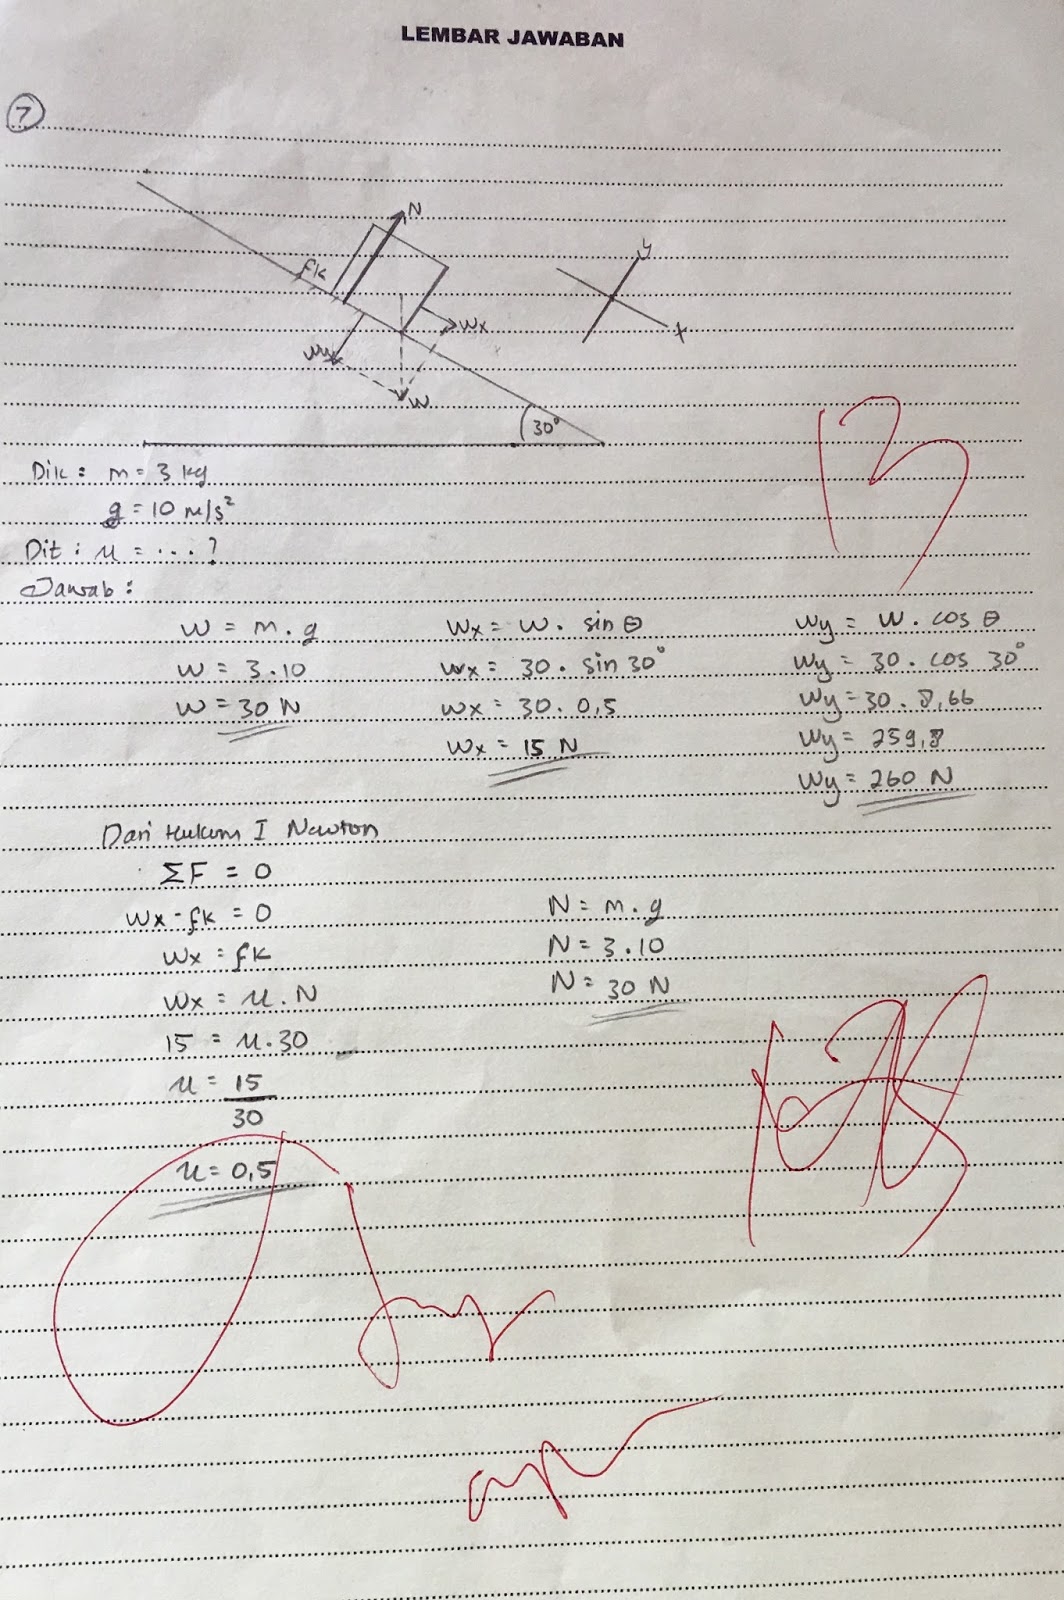 LEMBAR JAWABAN
7
N
fk
y
Wx
x
W
30°
Dik : m = 3 kg
g = 10 m/s²
Dit : μ = ... ?
Jawab :
W = m . g
W = 3 . 10
W = 30 N
Wx = W . sin θ
Wx = 30 . sin 30°
Wx = 30 . 0,5
Wx = 15 N
Wy = W . cos θ
Wy = 30 . cos 30°
Wy = 30 . 8,66
Wy = 259,8
Wy = 260 N
Dari Hukum I Newton
ΣF = 0
Wx - fk = 0
Wx = fk
Wx = μ . N
15 = μ . 30
μ = 15
30
μ = 0,5
N = m . g
N = 3 . 10
N = 30 N